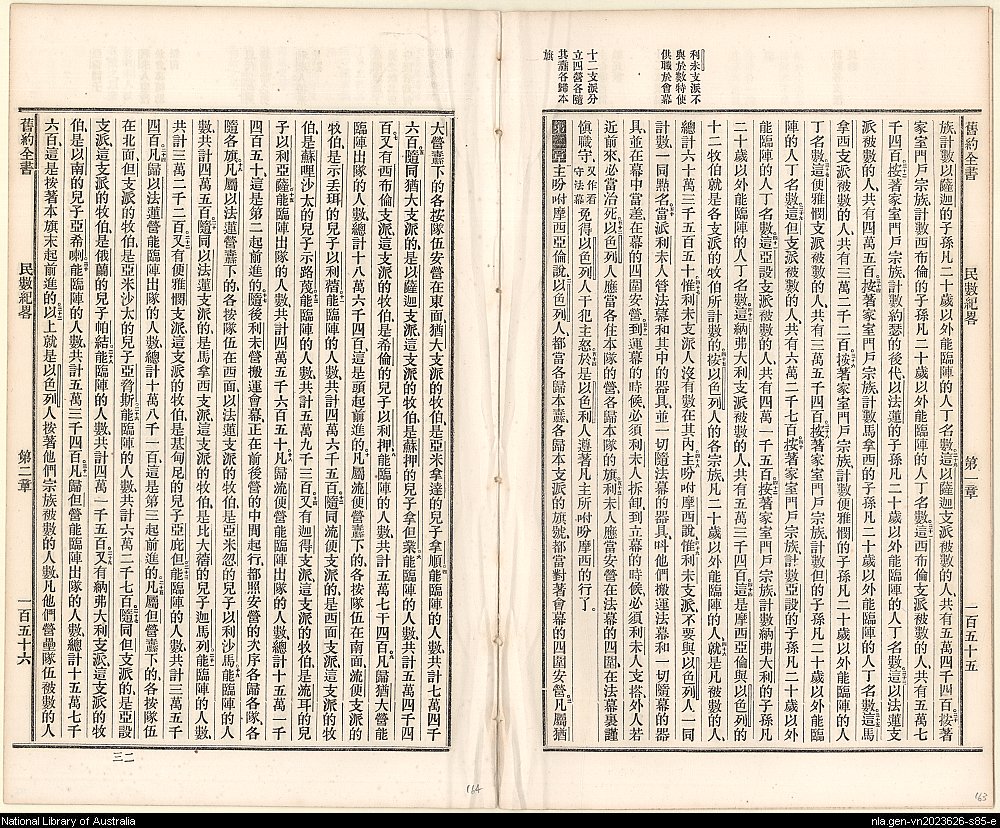 利未支派不
與於數特使
供職於會幕
十二支派分
立四營各隨
其纛各歸本
旗
舊約全書
民數紀畧
第二章
一百五十五
族計數以薩迦的子孫凡二十歲以外能臨陣的人丁名數這以薩迦支派被數的人共有五萬四千四百按著
家室門戶宗族計數西布倫的子孫凡二十歲以外能臨陣的人丁名數這西布倫支派被數的人共有五萬七
千四百按著家室門戶宗族計數約瑟的後代以法蓮的子孫凡二十歲以外能臨陣的人丁名數這以法蓮支
派被數的人共有四萬五百按著家室門戶宗族計數馬拿西的子孫凡二十歲以外能臨陣的人丁名數這馬
拿西支派被數的人共有三萬二千二百按著家室門戶宗族計數便雅憫的子孫凡二十歲以外能臨陣的人
丁名數這便雅憫支派被數的人共有三萬五千四百按著家室門戶宗族計數但的子孫凡二十歲以外能臨
陣的人丁名數這但支派被數的人共有六萬二千七百按著家室門戶宗族計數亞設的子孫凡二十歲以外
能臨陣的人丁名數這亞設支派被數的人共有四萬一千五百按著家室門戶宗族計數納弗大利的子孫凡
二十歲以外能臨陣的人丁名數這納弗大利支派被數的人共有五萬三千四百這是摩西亞倫與以色列的
十二牧伯就是各支派的牧伯所計數的按以色列人的各宗族凡二十歲以外能臨陣的人就是凡被數的人
總計六十萬三千五百五十惟利未支派人沒有數在其內主吩咐摩西說惟利未支派不要與以色列人一同
計數一同點名當派利未人管法幕和其中的器具並一切隨法幕的器具呌他們搬運法幕和一切隨幕的器
具並在幕中當差在幕的四圍安營到運幕的時候必須利未人拆卸到立幕的時候必須利未人支搭外人若
近前來必當治死以色列人應當各住本隊的營各歸本隊的旗利未人應當安營在法幕的四圍在法幕裏謹
愼職守又作看守法幕免得以色列人干犯主怒於是以色列人遵著凡主所吩咐摩西的行了
第二章主吩咐摩西亞倫說以色列人都當各歸本纛各歸本支派的旗號都當對著會幕的四圍安營凡屬猶
大營纛下的各按隊伍安營在東面猶大支派的牧伯是亞米拿達的兒子拿順能臨陣的人數共計七萬四千
六百隨同猶大支派的是以薩迦支派這支派的牧伯是蘇押的兒子拿但業能臨陣的人數共計五萬四千四
百又有西布倫支派這支派的牧伯是希倫的兒子以利押能臨陣的人數共計五萬七千四百凡歸猶大營能
臨陣出隊的人數總計十八萬六千四百這是頭起前進的凡屬流便營纛下的各按隊伍在南面流便支派的
牧伯是示丟珥的兒子以利蓿能臨陣的人數共計四萬六千五百隨同流便支派的是西面支派這支派的牧
伯是蘇哩沙太的兒子示路蔑能臨陣的人數共計五萬九千三百又有迦得支派這支派的牧伯是流耳的兒
子以利亞薩能臨陣出隊的人數共計四萬五千六百五十凡歸流便營能臨陣出隊的人數總計十五萬一千
四百五十這是第二起前進的隨後利未營搬運會幕正在前後營的中間起行都照安營的次序各歸各隊各
隨各旗凡屬以法蓮營纛下的各按隊伍在西面以法蓮支派的牧伯是亞米忽的兒子以利沙馬能臨陣的人
數共計四萬五百隨同以法蓮支派的是馬拿西支派這支派的牧伯是比大蓿的兒子迦馬列能臨陣的人數
共計三萬二千二百又有便雅憫支派這支派的牧伯是基甸尼的兒子亞庇但能臨陣的人數共計三萬五千
四百凡歸以法蓮營能臨陣出隊的人數總計十萬八千一百這是第三起前進的凡屬但營纛下的各按隊伍
在北面但支派的牧伯是亞米沙太的兒子亞脋斯能臨陣的人數共計六萬二千七百隨同但支派的是亞設
支派這支派的牧伯是俄蘭的兒子帕結能臨陣的人數共計四萬一千五百又有納弗大利支派這支派的牧
伯是以南的兒子亞希喇能臨陣的人數共計五萬三千四百凡歸但營能臨陣出隊的人數總計十五萬七千
六百這是按著本旗末起前進的以上就是以色列人按著他們宗族被數的人數凡他們營壘隊伍被數的人
舊約全書
民數紀畧
第二章
一百五十六
三二
164
163
National Library of Australia
nla.gen-vn2023626-s85-e